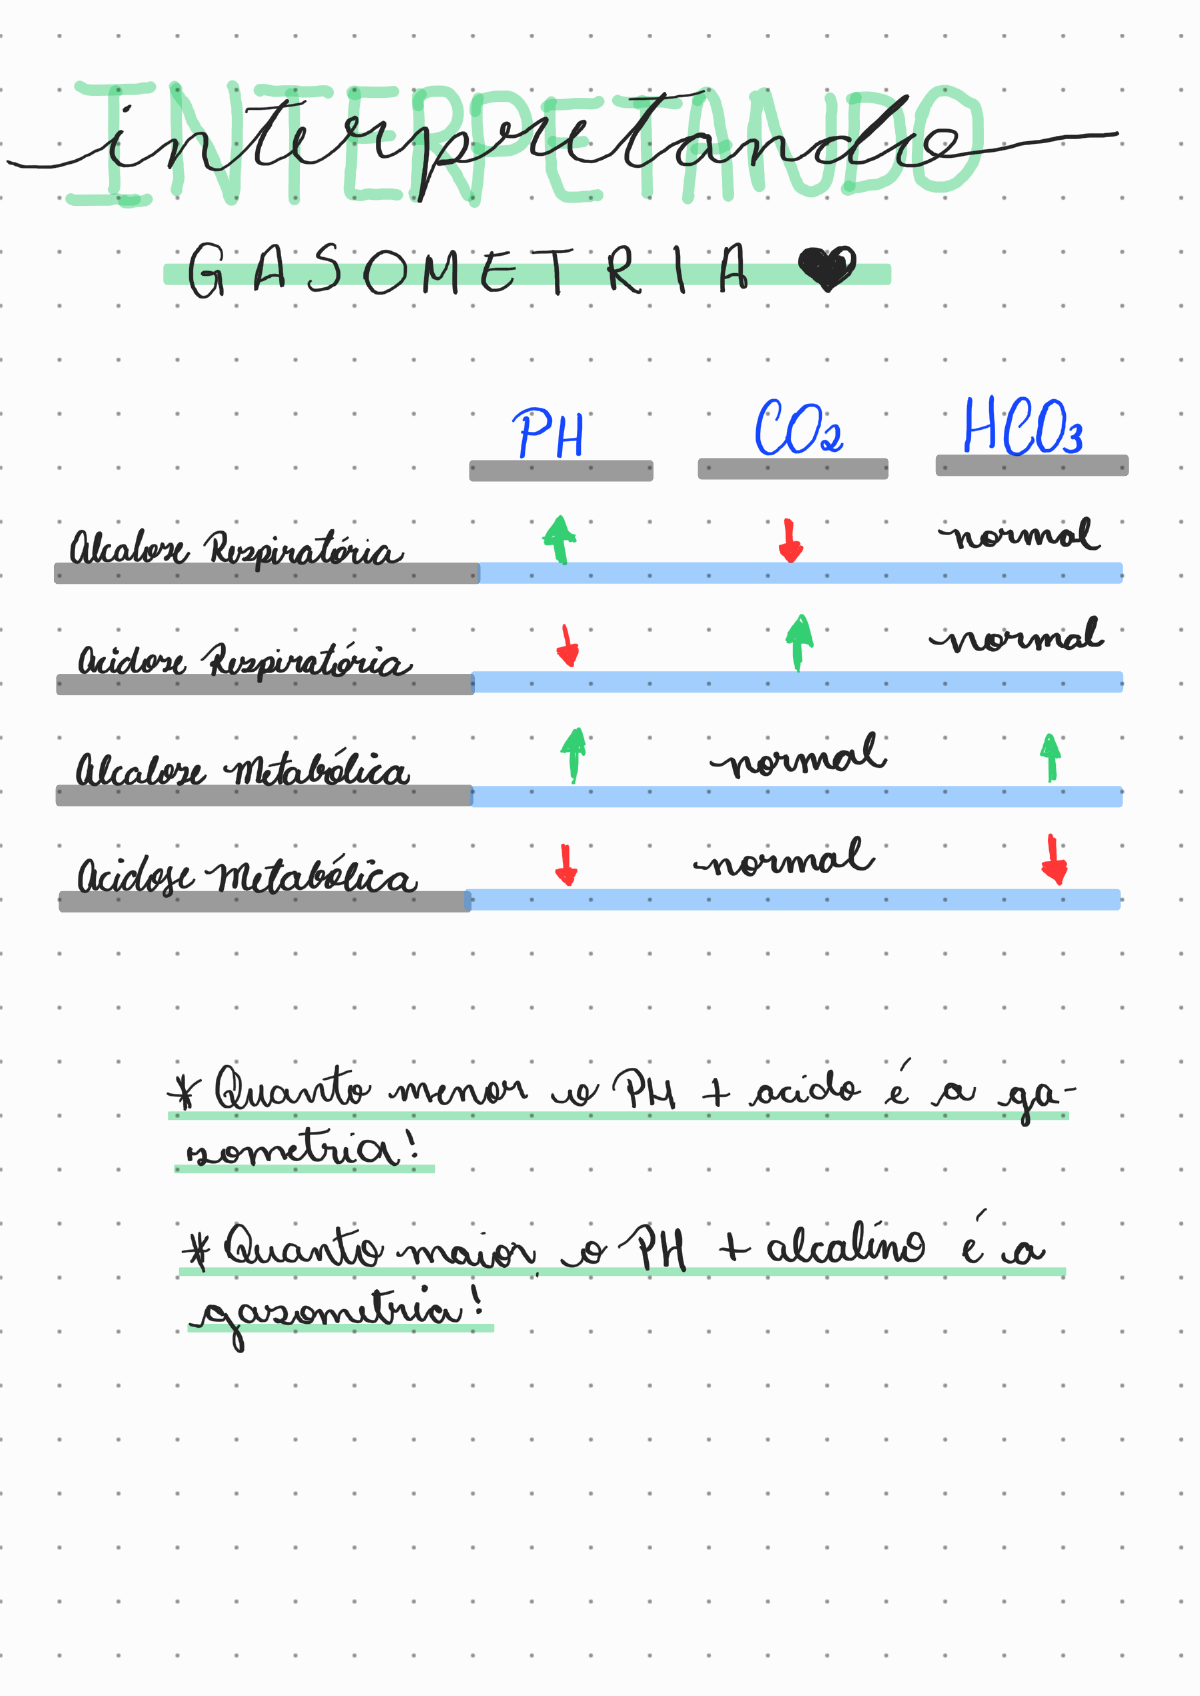 INTERPETANDO
interpretando
GASOMETRIA
PH CO2 HCO3
Alcalose Respiratória ↑ ↓ normal
Acidose Respiratória ↓ ↑ normal
Alcalose Metabólica ↑ normal ↑
Acidose Metabólica ↓ normal ↓
* Quanto menor o PH + acido é a ga-
sometria!
* Quanto maior o PH + alcalino é a
gasometria!